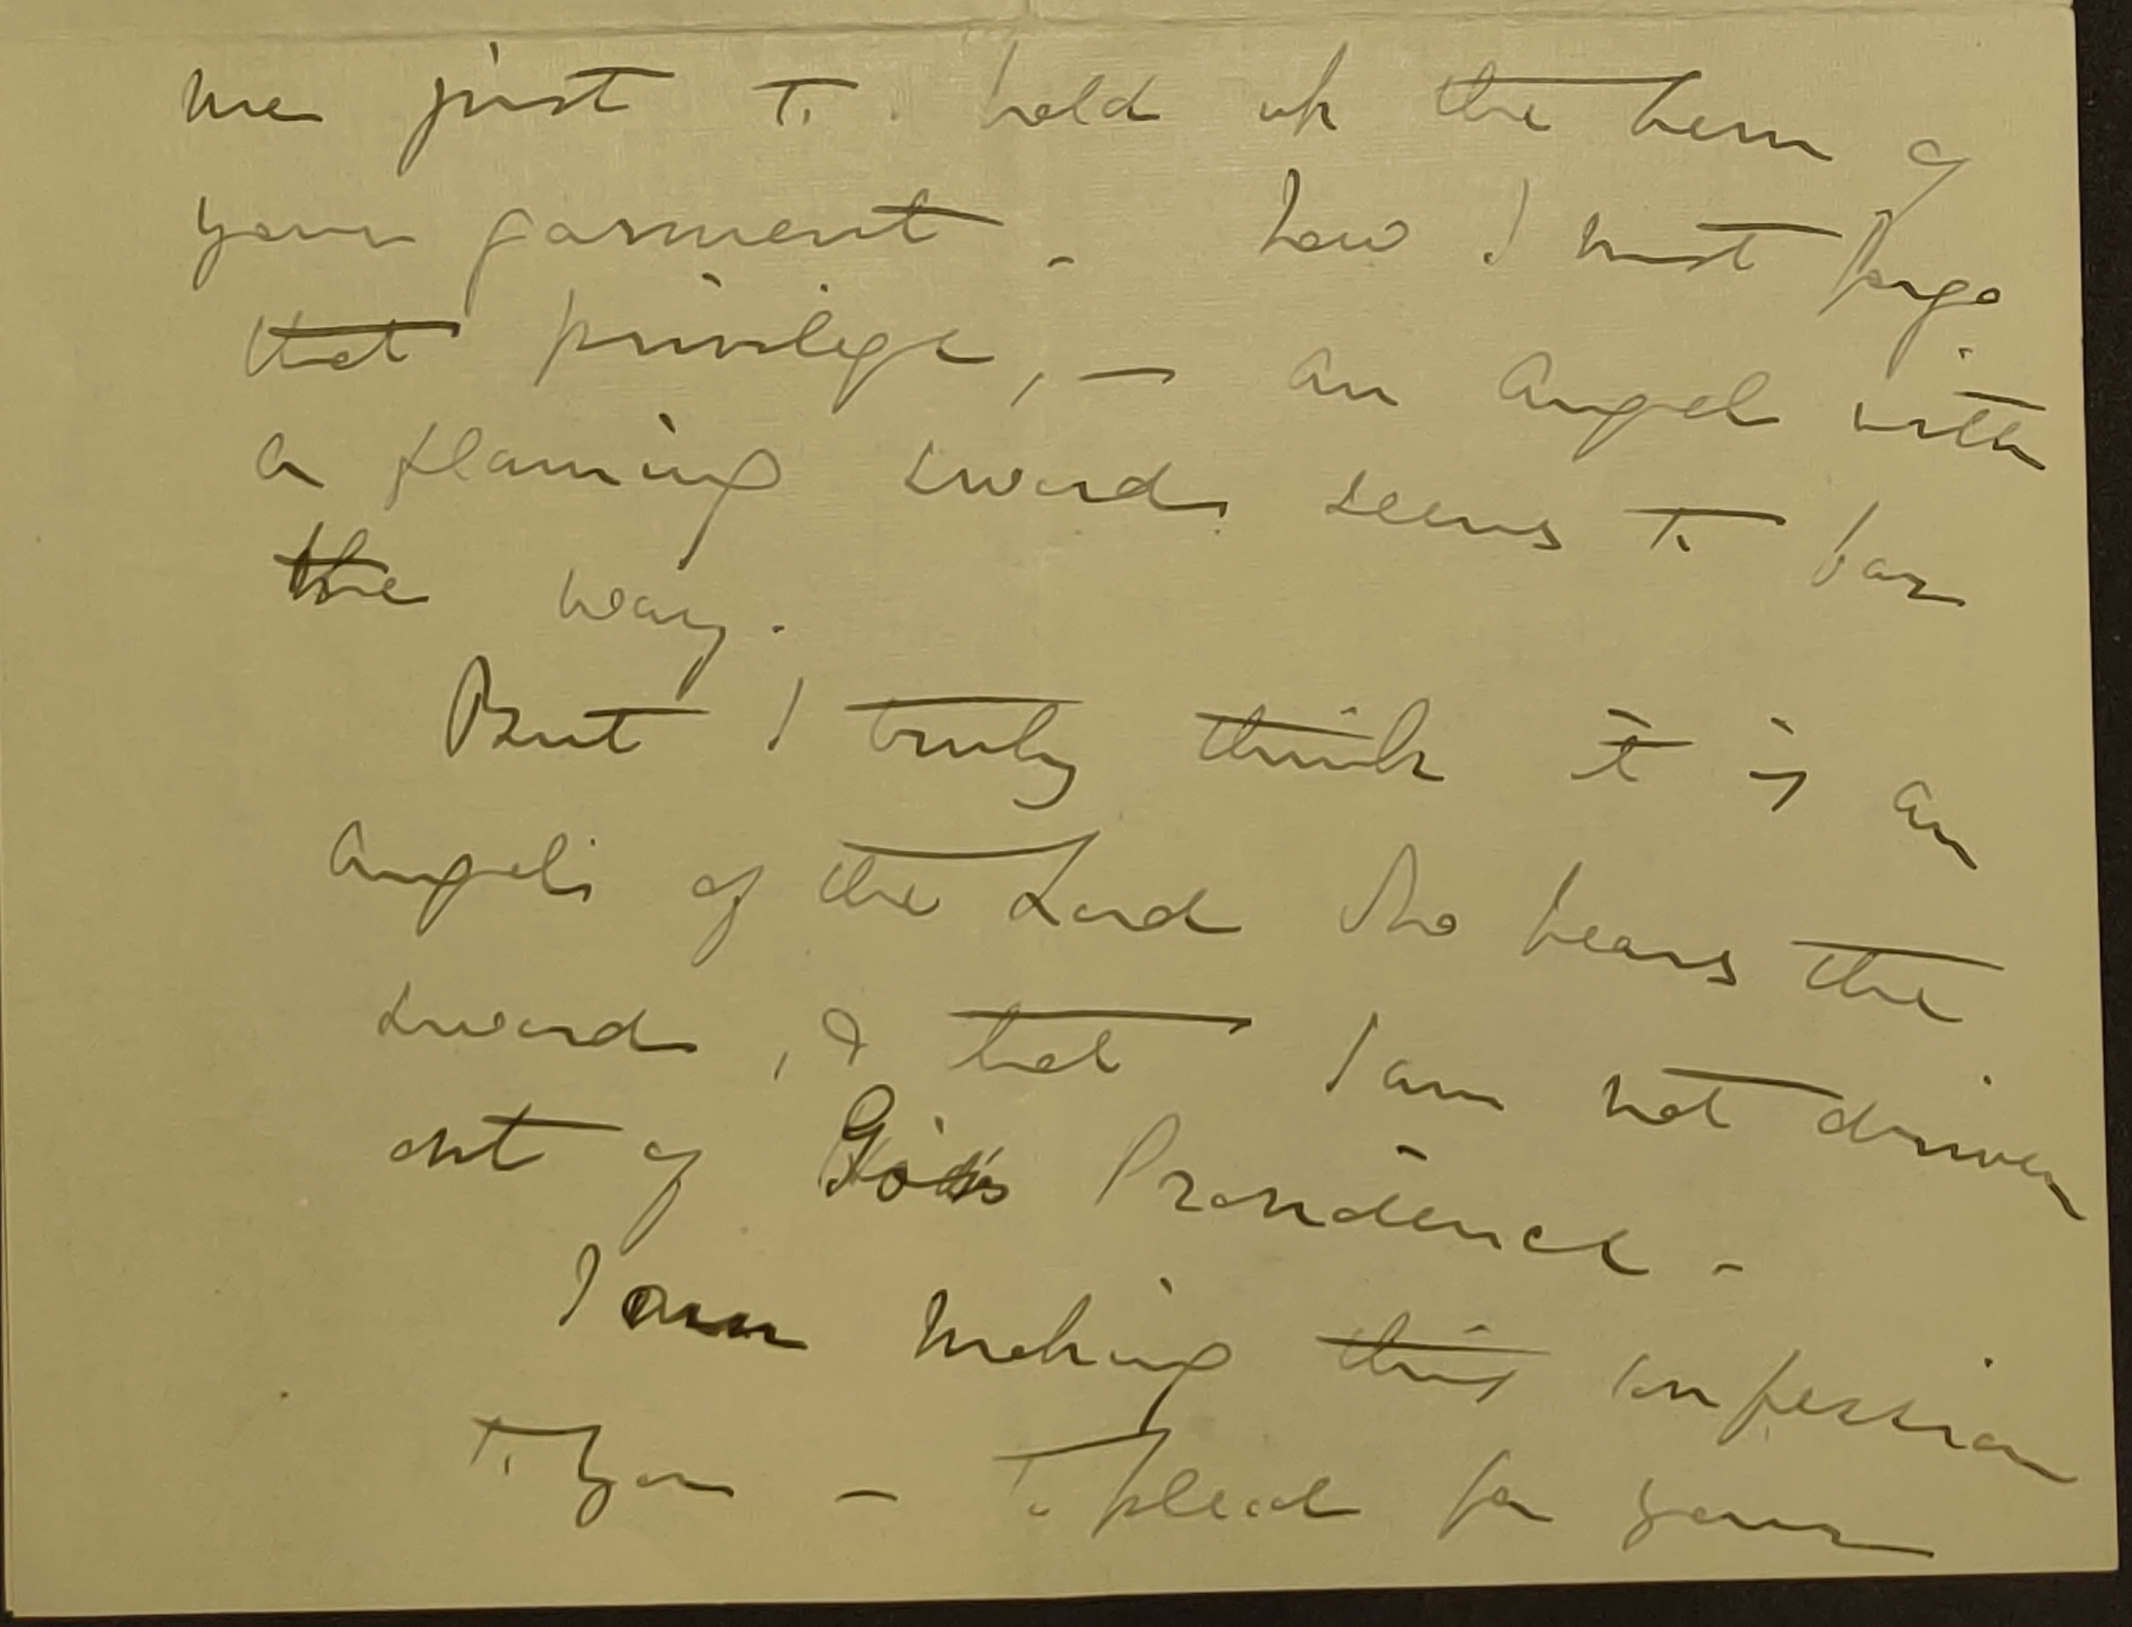 me just to hold up the hem of
your garment - how I must forgo
that privilege, — an angel with
a flaming sword seems to bar
the way.
But I truly think it is an
Angel of the Lord who bears the
sword, & that I am not driven
out of God's Providence -
I am making this confession
to you — to plead for your